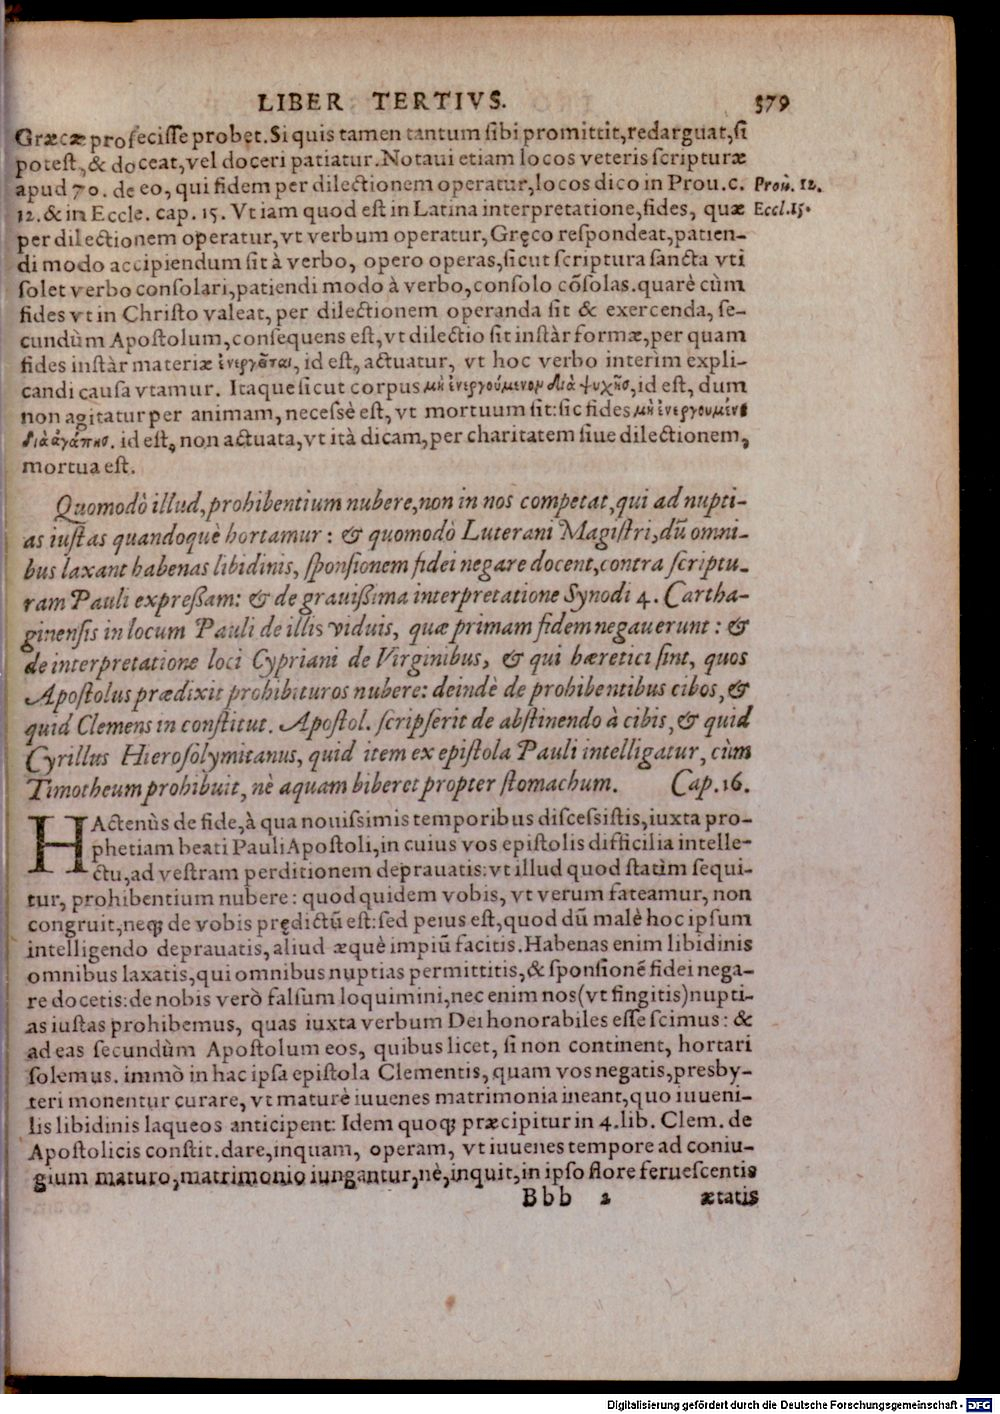 LIBER TERTIVS. 379
Græcæ profecisse probet. Si quis tamen tantum sibi promittit, redarguat, si
potest, & doceat, vel doceri patiatur. Notaui etiam locos veteris scripturæ
apud 70. de eo, qui fidem per dilectionem operatur, locos dico in Prou. c. Proü. 12.
12. & in Eccle. cap. 15. Vt iam quod est in Latina interpretatione, fides, quæ Eccl. 15.
per dilectionem operatur, vt verbum operatur, Gręco respondeat, patien-
di modo accipiendum sit à verbo, opero operas, sicut scriptura sancta vti
solet verbo consolari, patiendi modo à verbo, consolo cõsolas. quarè cùm
fides vt in Christo valeat, per dilectionem operanda sit & exercenda, se-
cundùm Apostolum, consequens est, vt dilectio sit instàr formæ, per quam
fides instàr materiæ ἐνεργᾶται, id est, actuatur, vt hoc verbo interìm expli-
candi causa vtamur. Itaque sicut corpus μὴ ἐνεργούμενον διὰ ψυχῆς, id est, dum
non agitatur per animam, necessè est, vt mortuum sit: sic fides μὴ ἐνεργουμένη
διὰ ἀγάπης. id est, non actuata, vt ità dicam, per charitatem siue dilectionem,
mortua est.
Quomodò illud, prohibentium nubere, non in nos competat, qui ad nupti-
as iustas quandoquè hortamur: & quomodò Luterani Magistri, dũ omni-
bus laxant habenas libidinis, sponsionem fidei negare docent, contra scriptu-
ram Pauli expreßam: & de grauißima interpretatione Synodi 4. Cartha-
ginensis in locum Pauli de illis viduis, quæ primam fidem negauerunt: &
de interpretatione loci Cypriani de Virginibus, & qui hæretici sint, quos
Apostolus prædixit prohibituros nubere: deindè de prohibentibus cibos, &
quid Clemens in constitut. Apostol. scripserit de abstinendo à cibis, & quid
Cyrillus Hierosolymitanus, quid item ex epistola Pauli intelligatur, cùm
Timotheum prohibuit, nè aquam biberet propter stomachum. Cap. 16.
HActenùs de fide, à qua nouissimis temporibus discessistis, iuxta pro-
phetiam beati Pauli Apostoli, in cuius vos epistolis difficilia intelle-
ctu, ad vestram perditionem deprauatis: vt illud quod statìm sequi-
tur, prohibentium nubere: quod quidem vobis, vt verum fateamur, non
congruit, neq; de vobis prędictũ est: sed peius est, quod dũ malè hoc ipsum
intelligendo deprauatis, aliud æquè impiũ facitis. Habenas enim libidinis
omnibus laxatis, qui omnibus nuptias permittitis, & sponsionẽ fidei nega-
re docetis: de nobis verò falsum loquimini, nec enim nos (vt fingitis) nupti-
as iustas prohibemus, quas iuxta verbum Dei honorabiles esse scimus: &
ad eas secundùm Apostolum eos, quibus licet, si non continent, hortari
solemus. immò in hac ipsa epistola Clementis, quam vos negatis, presby-
teri monentur curare, vt maturè iuuenes matrimonia ineant, quo iuueni-
lis libidinis laqueos anticipent: Idem quoq; præcipitur in 4. lib. Clem. de
Apostolicis constit. dare, inquam, operam, vt iuuenes tempore ad coniu-
gium maturo, matrimonio iungantur, nè, inquit, in ipso flore feruescentis
Bbb 2 ætatis
Digitalisierung gefördert durch die Deutsche Forschungsgemeinschaft - DFG